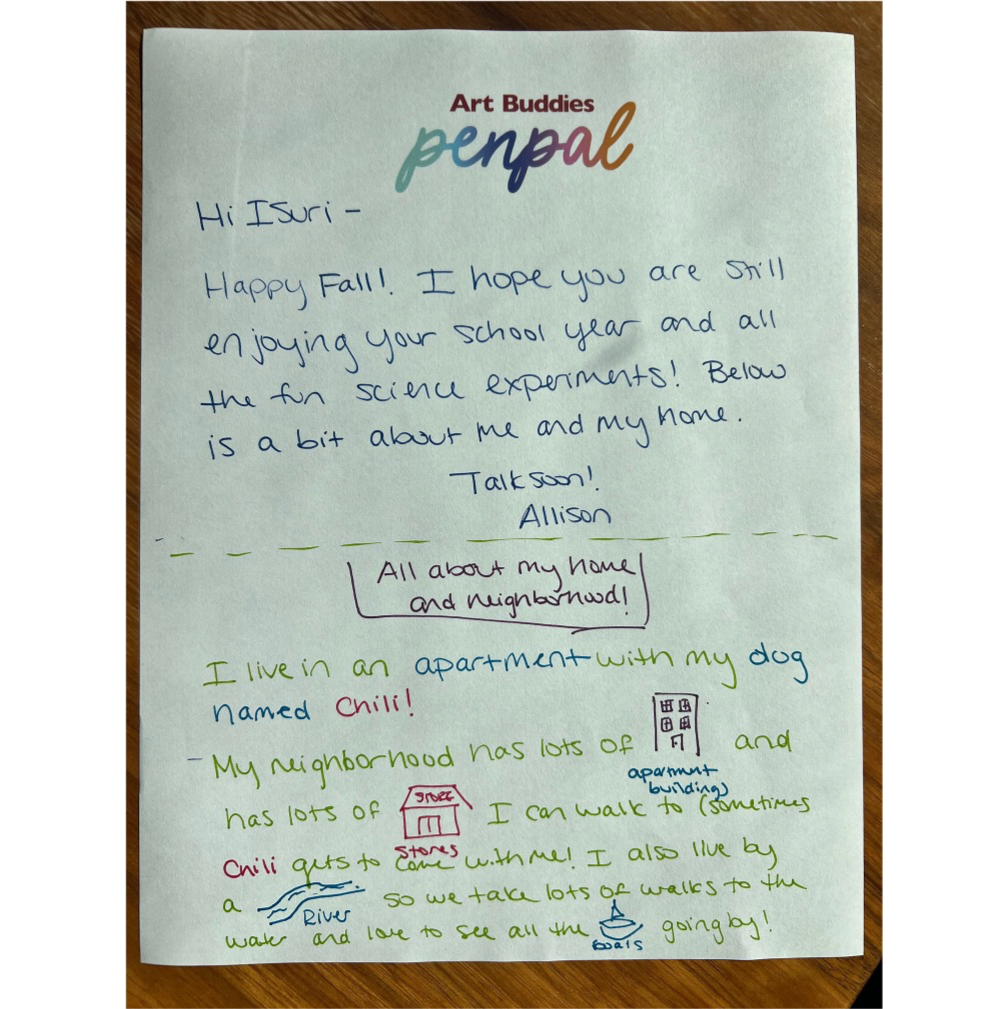 Art Buddies
penpal
Hi Isuri -
Happy Fall! I hope you are still
enjoying your school year and all
the fun science experiments! Below
is a bit about me and my home.
Talk soon!
Allison
All about my home
and neighborhood!
I live in an apartment with my dog
named Chili!
My neighborhood has lots of and
apartment
buildings
has lots of STORE I can walk to (sometimes
stores
Chili gets to come with me! I also live by
a so we take lots of walks to the
River
water and love to see all the going by!
boats